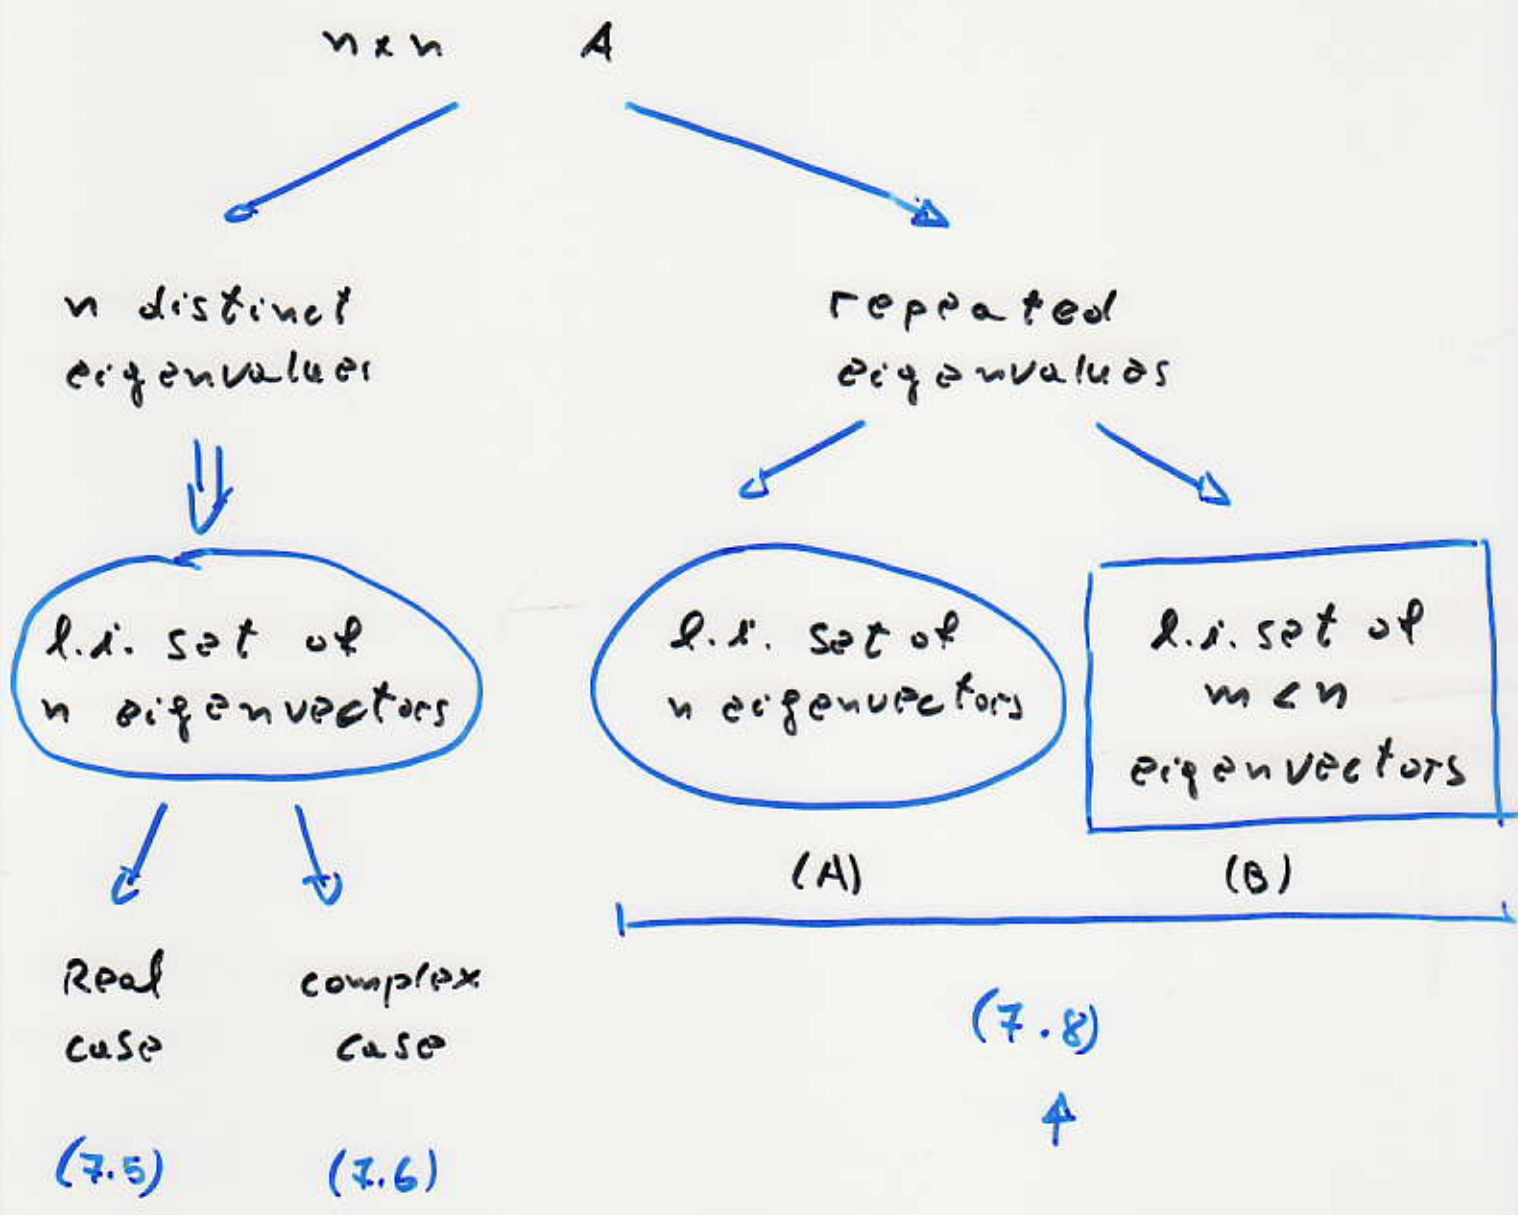 n x n A
n distinct
eigenvalues
repeated
eigenvalues
l.i. set of
n eigenvectors
l.i. set of
n eigenvectors
l.i. set of
m < n
eigenvectors
(A)
(B)
Real
case
complex
case
(7.5)
(7.6)
(7.8)